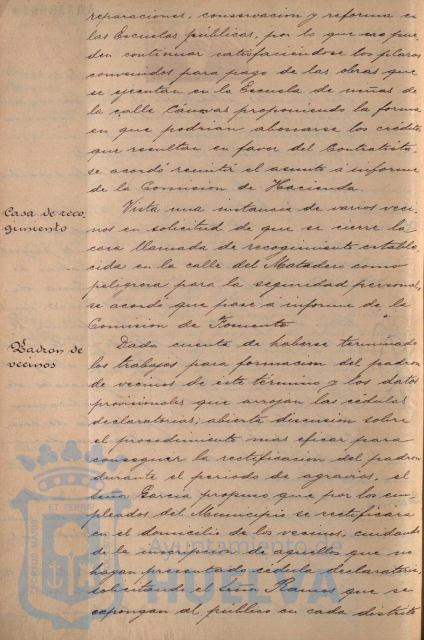 reparaciones, conservacion y reforma en
las Escuelas públicas, por lo que no pue-
den continuar satisfaciendose los plazos
convenidos para pago de las obras que
se ejecutan en la Escuela de niñas de
la calle Cánovas proponiendo la forma
en que podrian abonarse los créditos
que resultan en favor del Contratista,
se acordó remitir el asunto á informe
de la Comision de Hacienda.
Casa de reco-
gimiento
Vista una instancia de varios veci-
nos en solicitud de que se cierre la
casa llamada de recogimiento estable-
cida en la calle del Matadero como
peligrosa para la seguridad personal,
se acordó que pase á informe de la
Comision de Fomento
Padron de
vecinos
Dada cuenta de haberse terminado
los trabajos para formacion del padron
de vecinos de este término y los datos
provisionales que arrojan las cédulas
declaratorias; abierta discusion sobre
el procedimiento mas eficaz para
conseguir la rectificacion del padron
durante el periodo de agravios, el
señor García propuso que por los em-
pleados del Municipio se rectificara
en el domicilio de los vecinos, cuidando
de la inscripcion de aquellos que no
hayan presentado cédula declaratoria,
solicitando el señor Ramos que se
expongan al público en cada distrito
Ayuntamiento de
HUELVA
PORTUS MARIS
ET TERRAE